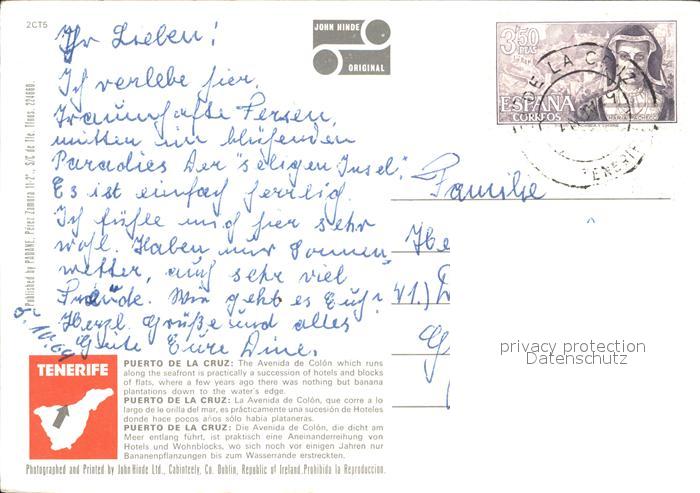 2CT5
JOHN HINDE
ORIGINAL
3,50
PTAS
ESPAÑA
CORREOS
DE LA C
TENERIFE
Published by PADANE. Pérez Zamora 11-2°., S/C de Tfe. Tfnos. 224660.
Ihr Lieben!
Ich verlebe hier
traumhafte Ferien,
mitten im blühenden
Paradies der "seligen Insel".
Es ist einfach herrlich.
Ich fühle mich hier sehr
wohl. Haben nur Sonnen
wetter, auch sehr viel
Freude. Wie geht es Euch?
Herzl. Grüße und alles
Gute Eure
Familie
He
41.)
G
privacy protection
Datenschutz
TENERIFE
PUERTO DE LA CRUZ: The Avenida de Colón which runs
along the seafront is practically a succession of hotels and blocks
of flats, where a few years ago there was nothing but banana
plantations down to the water's edge.
PUERTO DE LA CRUZ: La Avenida de Colón, que corre a lo
largo de le orilla del mar, es prácticamente una sucesión de Hoteles
donde hace pocos años sólo había plataneras.
PUERTO DE LA CRUZ: Die Avenida de Colón, die dicht am
Meer entlang führt, ist praktisch eine Aneinanderreihung von
Hotels und Wohnblocks, wo sich noch vor einigen Jahren nur
Bananenpflanzungen bis zum Wasserrande erstreckten.
Photographed and Printed by John Hinde Ltd., Cabinteely, Co. Dublin, Republic of Ireland. Prohibida la Reproduccion.